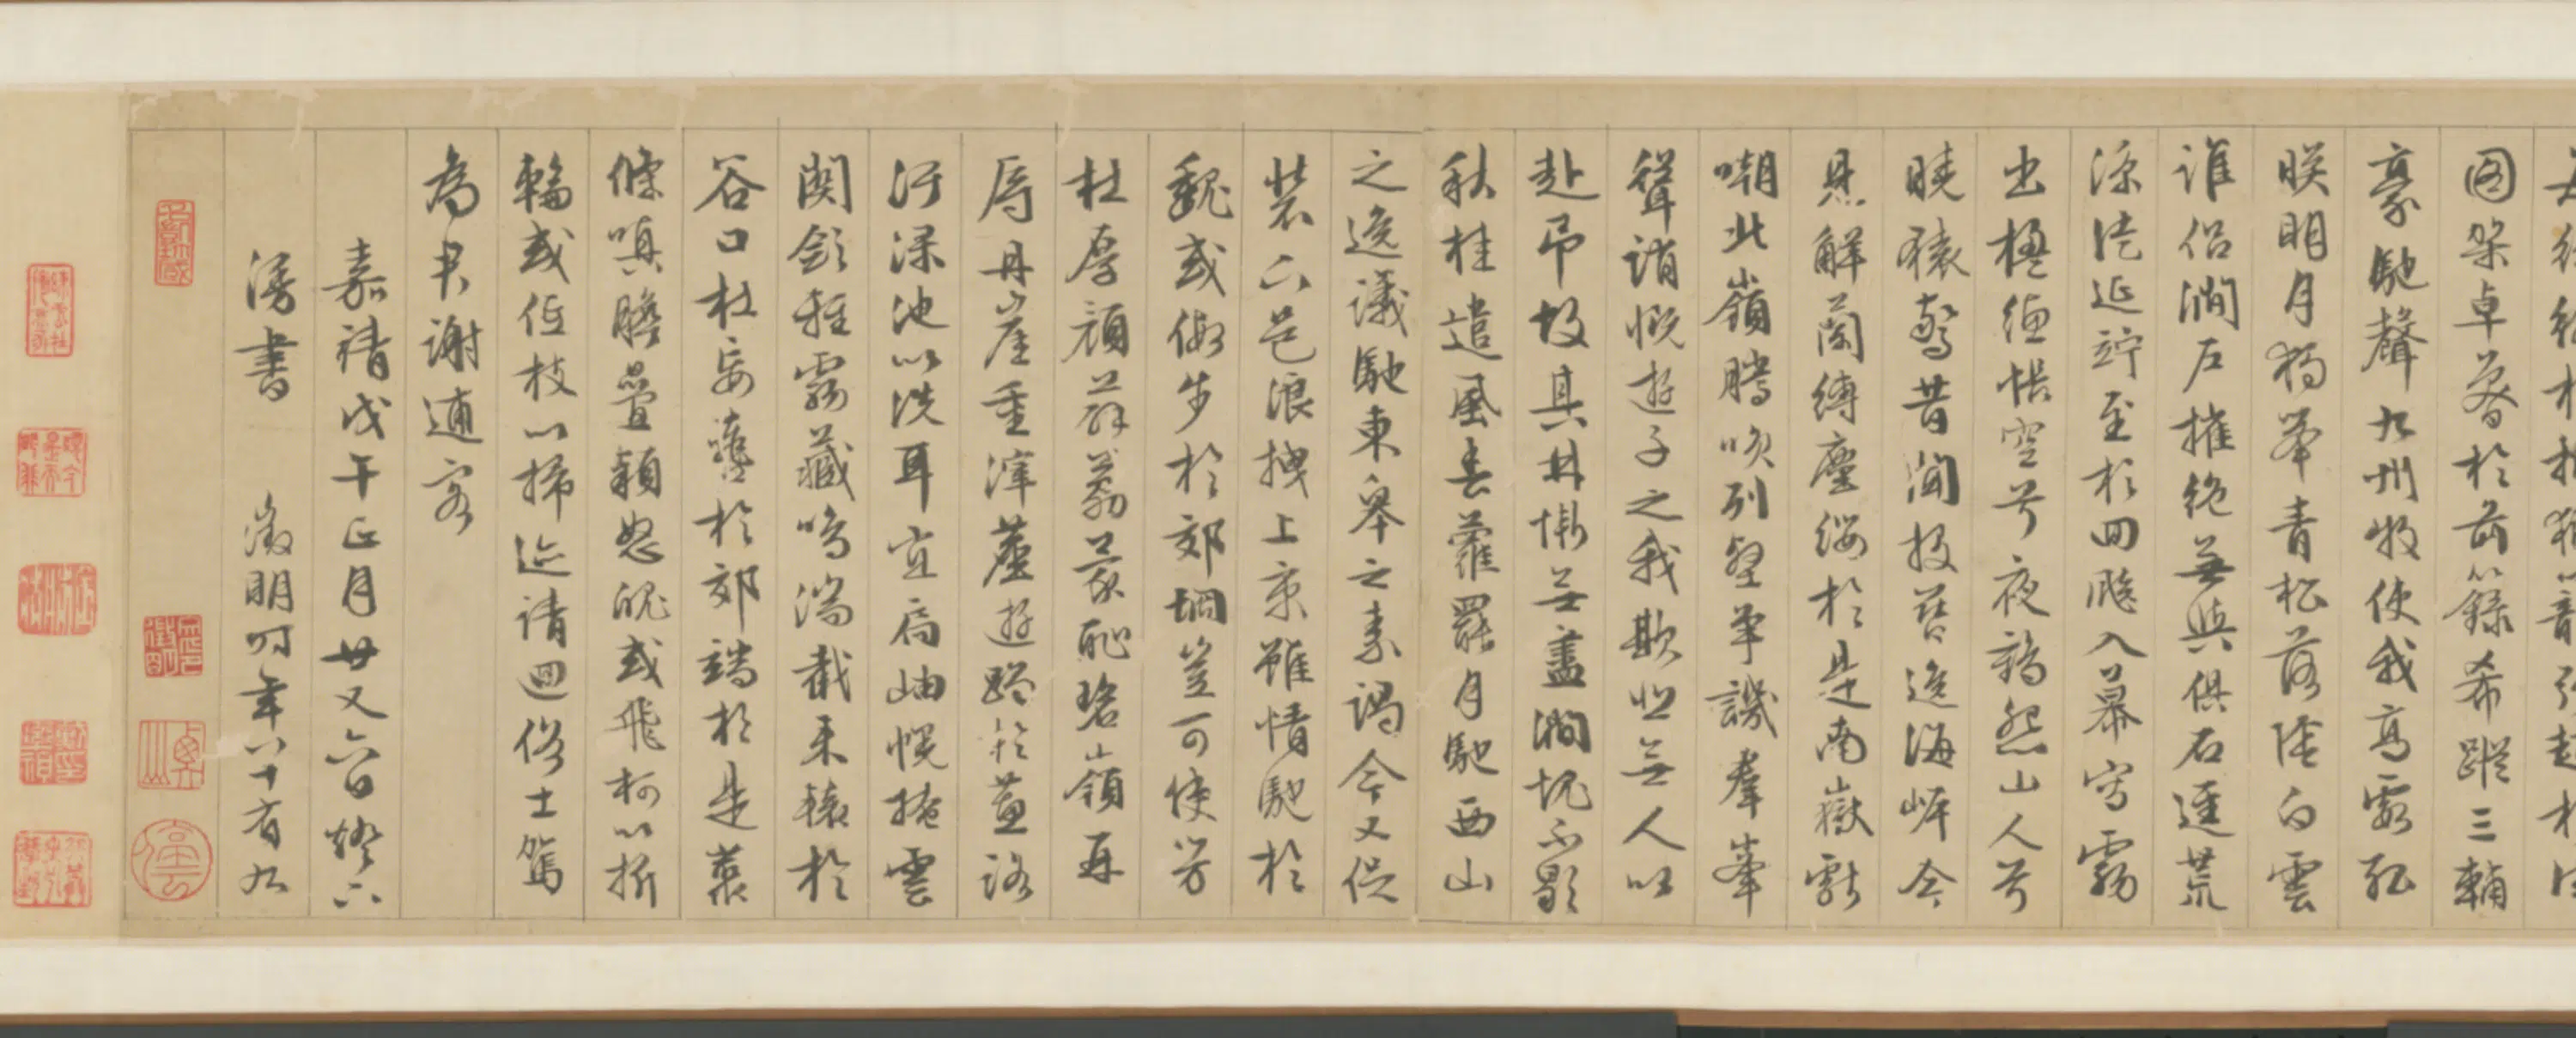 圖架卓魯於前籙希蹤三輔
豪馳聲九州牧使我高霞孤
映明月獨舉青松落陰白雲
誰侶澗戶摧絕無與俱石逕荒
涼徒延竚至於回飈入幕寫霧
出楹蕙帳空兮夜鶴怨山人兮
曉猿驚昔聞投簪逸海岸今
見解蘭縛塵纓於是南嶽獻
嘲北嶺騰笑列壑爭譏羣峯
聳誚慨遊子之我欺悲無人以
赴弔故其林慚無盡澗愧不歇
秋桂遣風春蘿罷月馳西山
之逸議馳東皋之素謁今又促
裝下邑浪拽上京雖情馳於
魏或假步於郊坰豈可使芳
杜厚顏薜荔蒙恥碧嶺再
辱丹崖重滓塵遊躅於蕙路
汙淥池以洗耳宜扃岫幌掩雲
關斂輕霧藏鳴湍截來轅於
谷口杜妄轡於郊端於是叢
條瞋膽疊穎怒魄或飛柯以折
輪或低枝以掃迹請迴俗士駕
為君謝逋客
嘉靖戊午正月廿又六日燈下
漫書 徵明時年八十有九